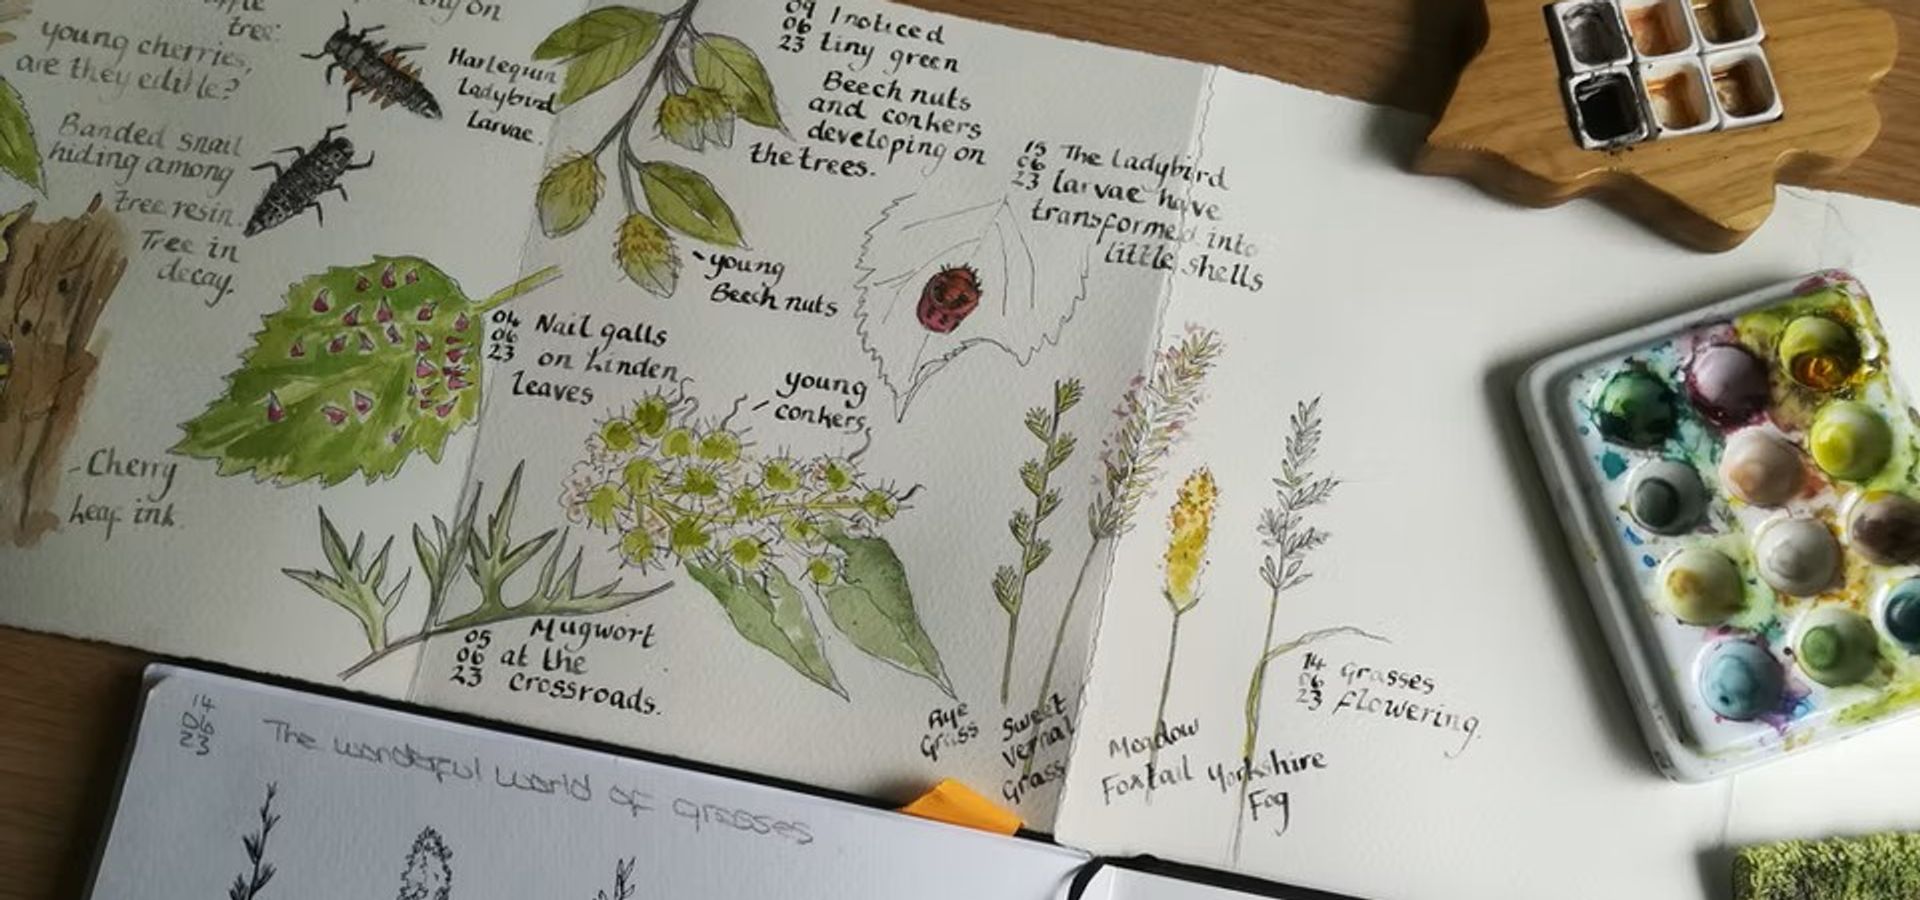 tree.
young cherries,
are they edible?
Banded snail
hiding among
tree resin.
Tree in
decay.
- Cherry
Leaf ink.
on
Harlequin
Ladybird
Larvae.
09
06
23
I noticed
tiny green
Beech nuts
and conkers
developing on
the trees.
young
Beech nuts
15
06
23
The Ladybird
larvae have
transformed into
little shells
04
06
23
Nail galls
on Linden
leaves
young
conkers
05
06
23
Mugwort
at the
crossroads.
Rye
Grass
Sweet
Vernal
Grass
Meadow
Foxtail
Yorkshire
Fog
14
06
23
grasses
flowering.
14
06
23
The wonderful world of grasses